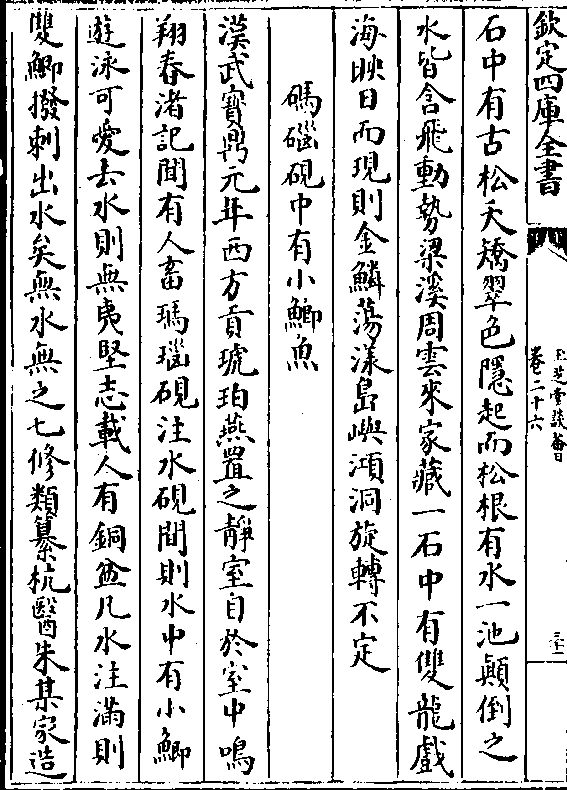 欽定四庫全書
玉芝堂談薈
卷二十六
三十一
石中有古松夭矯翠色隱起而松根有水一池顛倒之
水皆含飛動勢梁溪周雲來家藏一石中有雙龍戲
海映日而現則金鱗蕩漾島嶼澒洞旋轉不定
碼碯硯中有小鯽魚
漢武寶鼎元年西方貢琥珀燕置之靜室自於室中鳴
翔春渚記聞有人畜瑪瑙硯注水硯間則水中有小鯽
遊泳可愛去水則無夷堅志載人有銅盆凡水注滿則
雙鯽撥刺出水矣無水無之七修類纂杭醫朱某家造